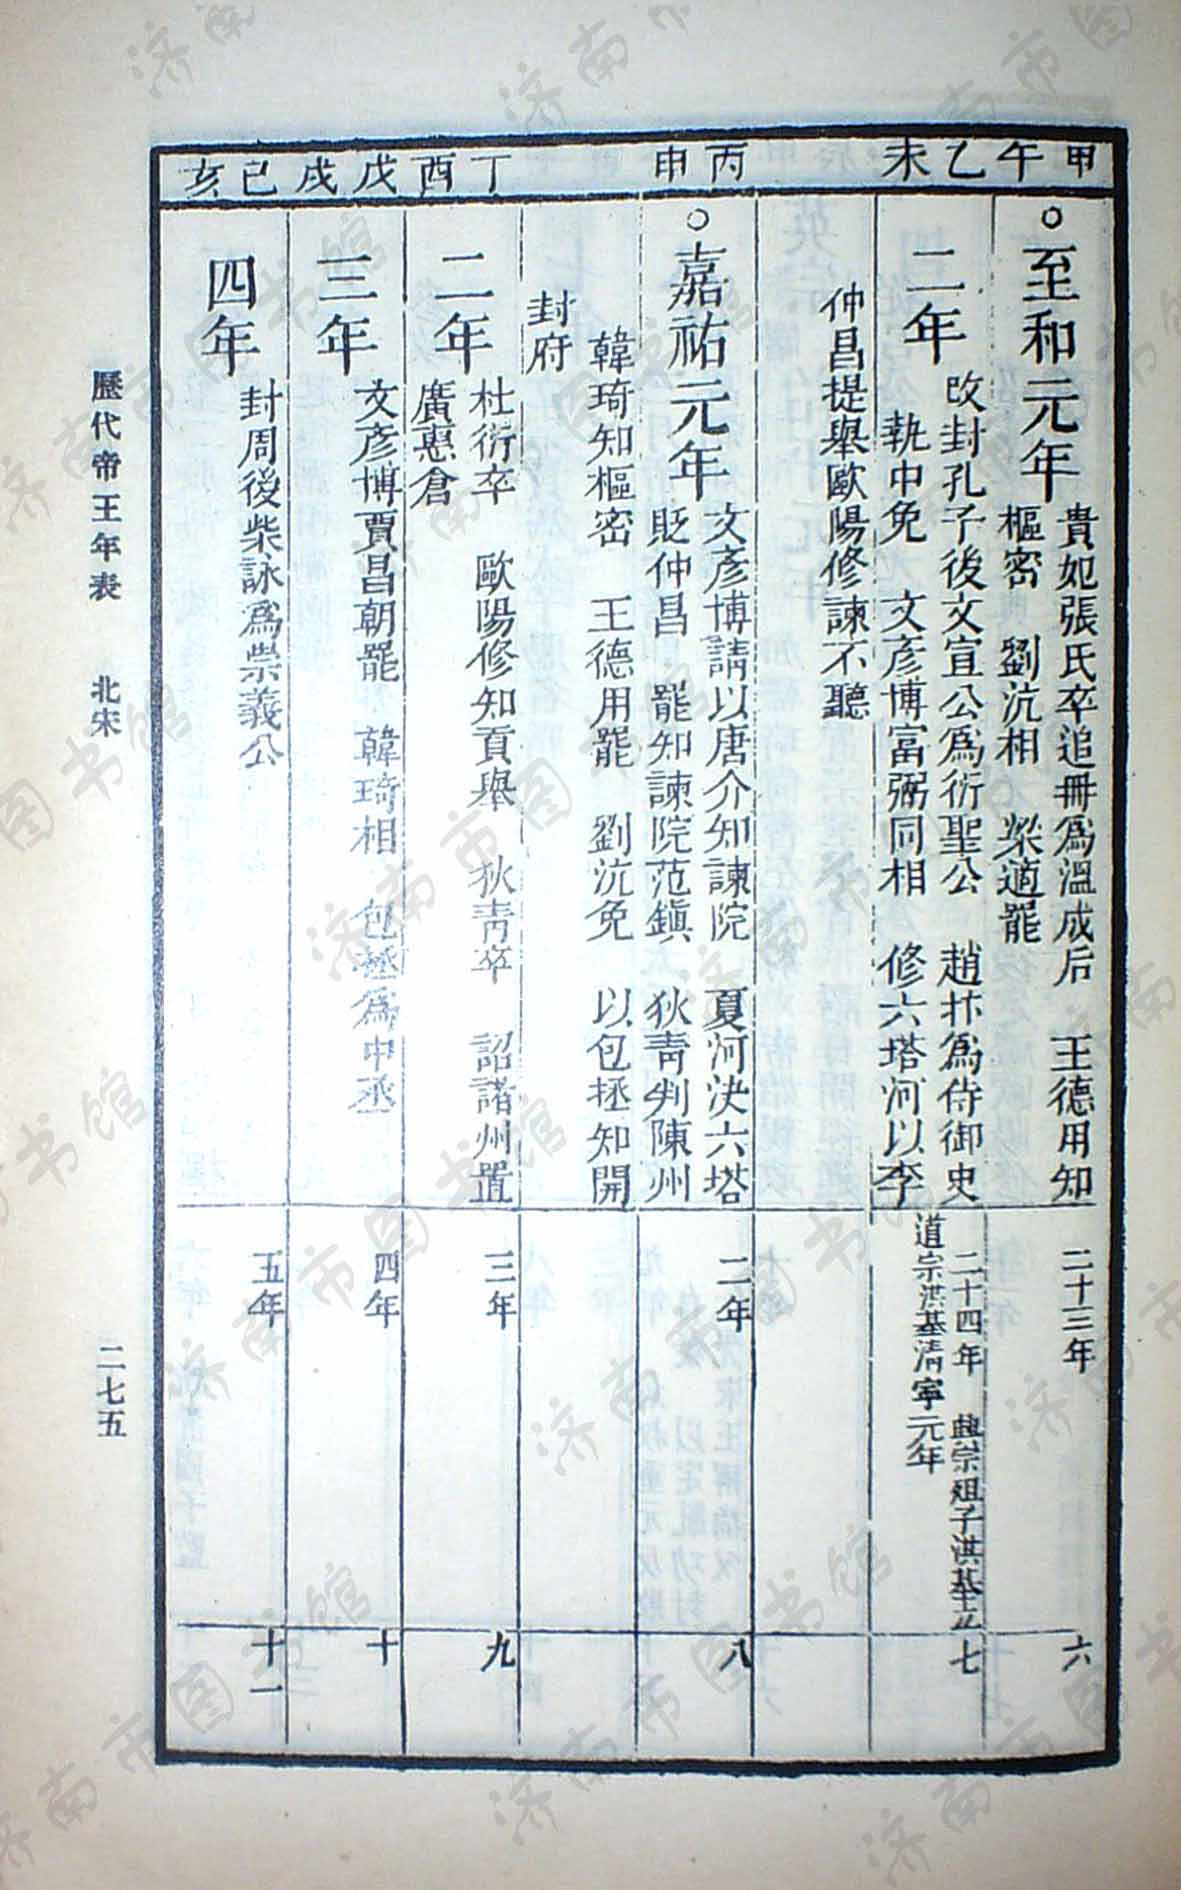 甲午 乙未 丙申 丁酉 戊戌 己亥
○至和元年
貴妃張氏卒追冊爲溫成后 王德用知
樞密 劉沆相 梁適罷
二十三年
六
二年
改封孔子後文宣公爲衍聖公 趙抃爲侍御史
執中免 文彥博富弼同相 修六塔河以李
仲昌提舉歐陽修諫不聽
二十四年 興宗殂子洪基立
道宗洪基清寧元年
七
○嘉祐元年
文彥博請以唐介知諫院 夏河決六塔
貶仲昌 罷知諫院范鎮 狄青判陳州
韓琦知樞密 王德用罷 劉沆免 以包拯知開
封府
二年
八
二年
杜衍卒 歐陽修知貢舉 狄青卒 詔諸州置
廣惠倉
三年
九
三年
文彥博賈昌朝罷 韓琦相 包拯爲中丞
四年
十
四年
封周後柴詠爲崇義公
五年
十一
歷代帝王年表 北宋
二七五
济南市图书馆